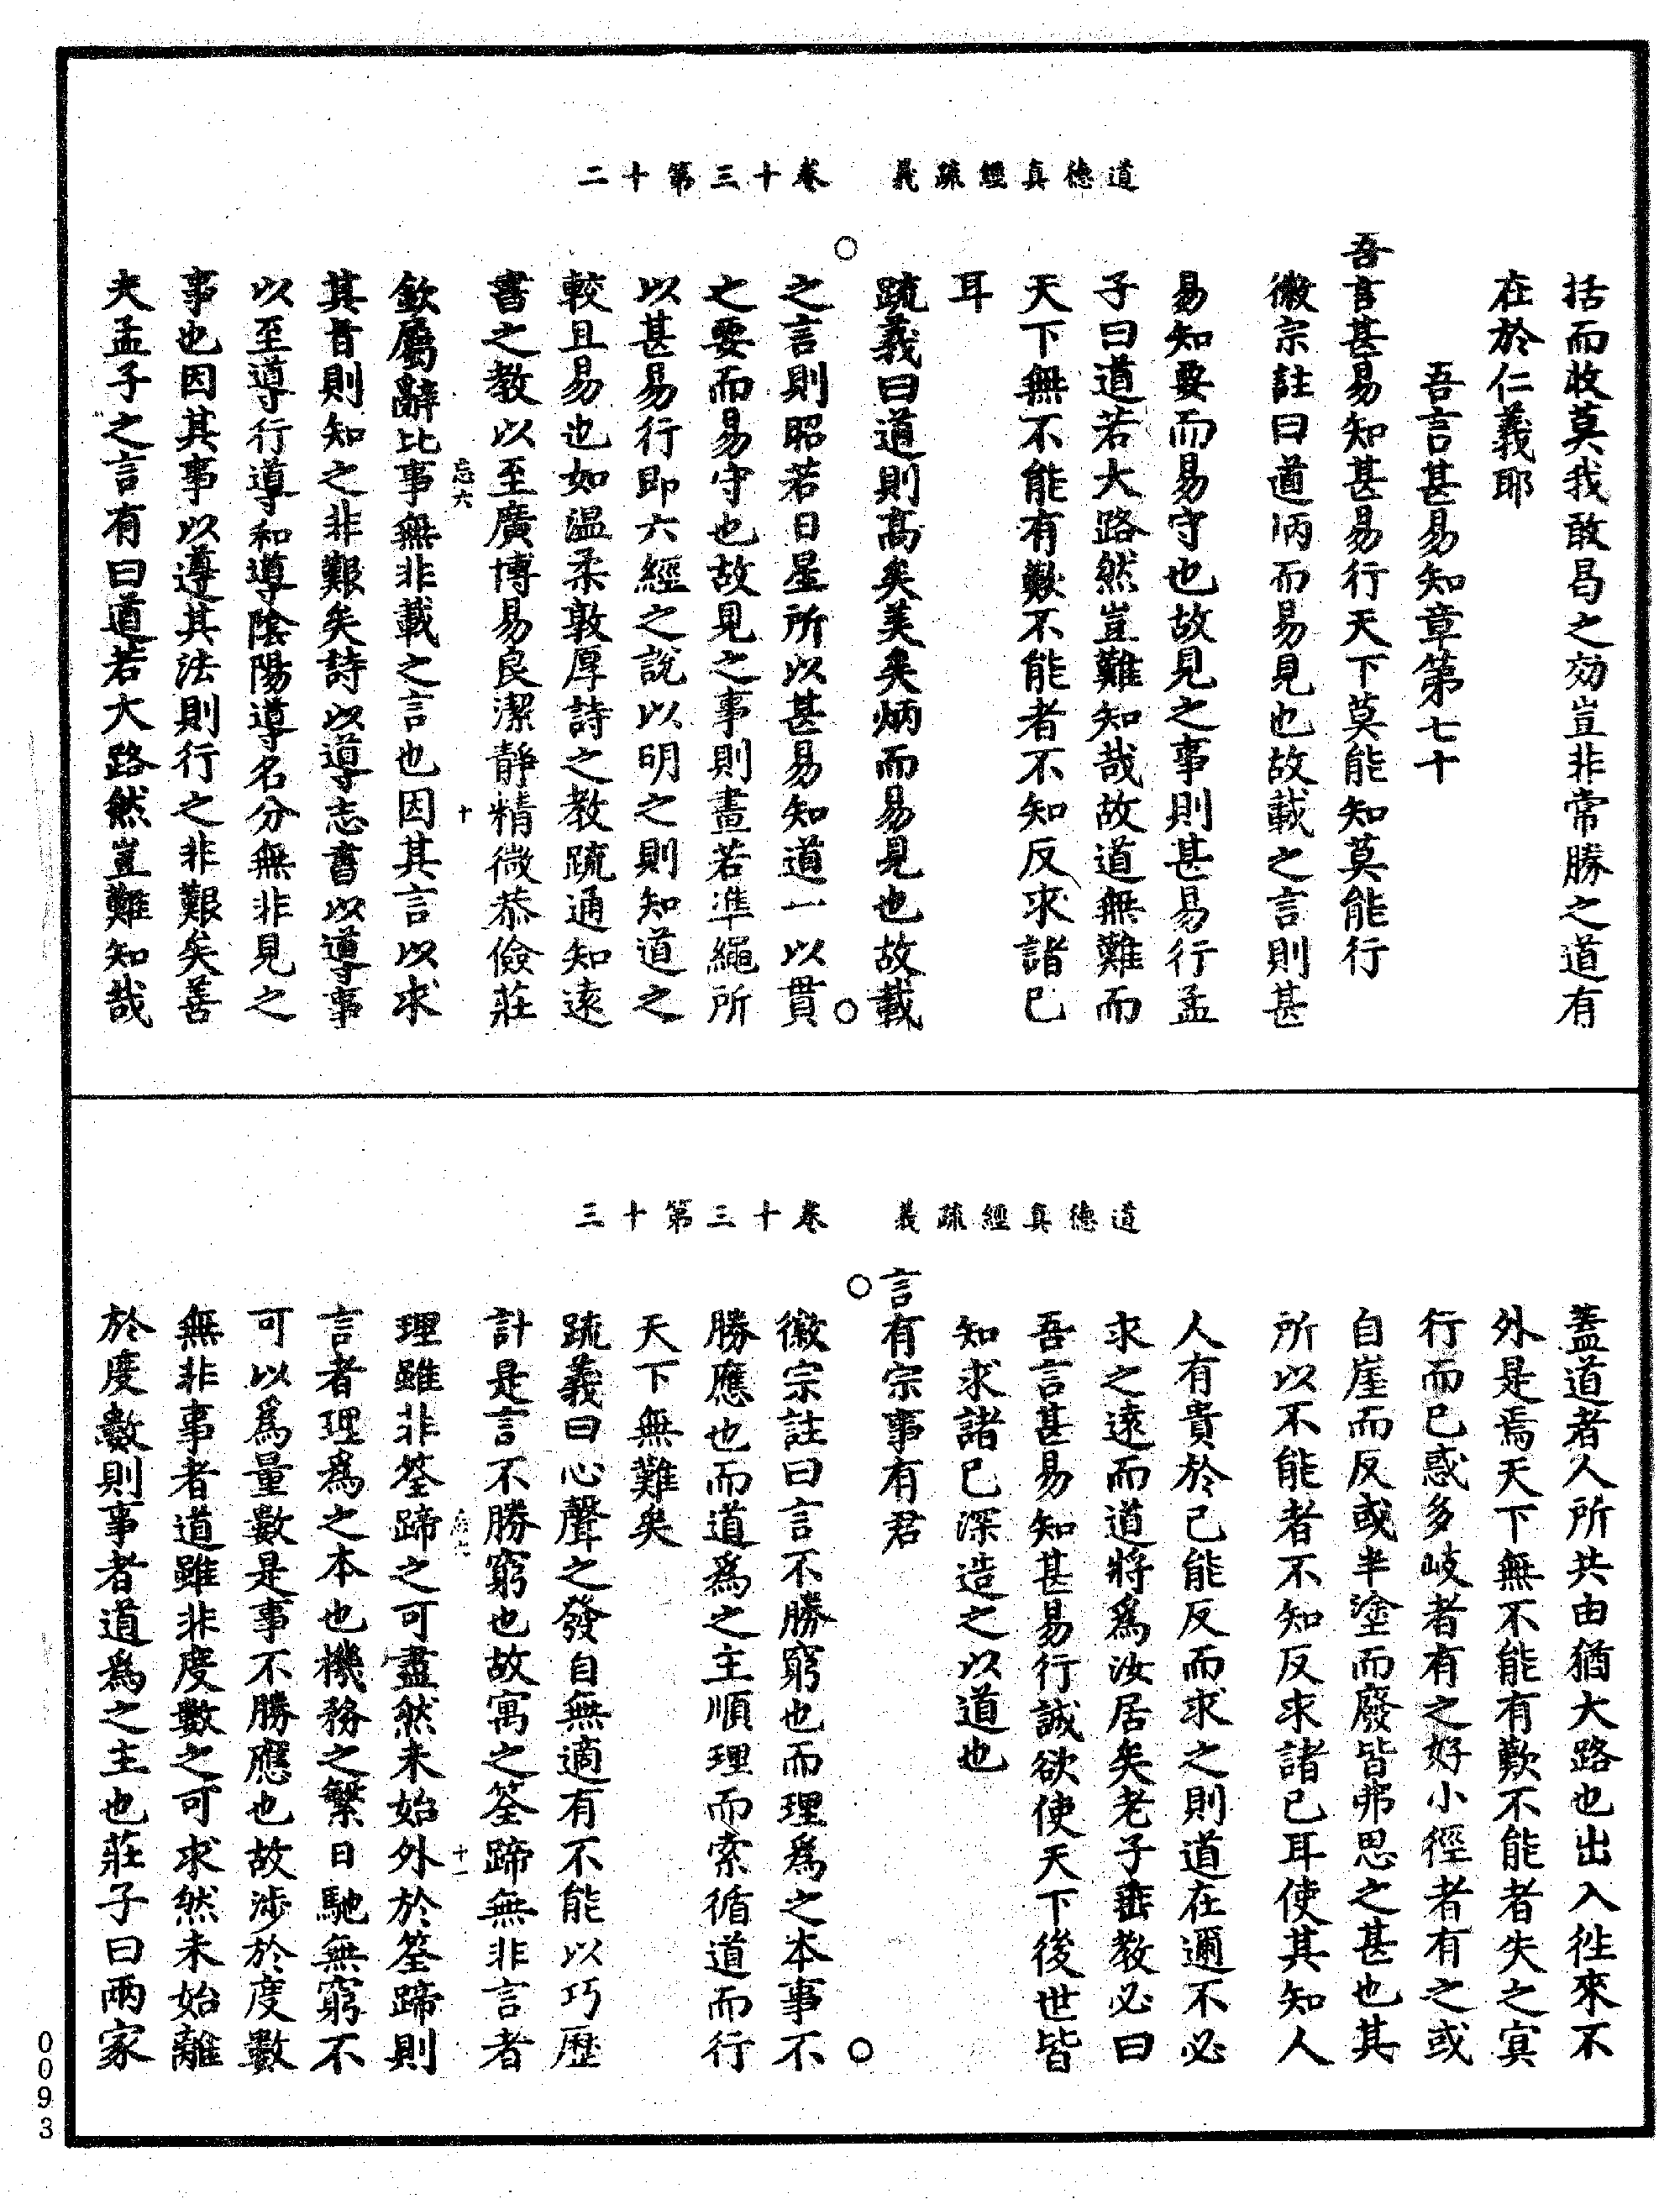 道德真經疏義　卷十三第十二
括而收莫我敢曷之効豈非常勝之道有
在於仁義耶
吾言甚易知章第七十
吾言甚易知甚易行天下莫能知莫能行
徽宗註曰道炳而易見也故載之言則甚
易知要而易守也故見之事則甚易行孟
子曰道若大路然豈難知哉故道無難而
天下無不能有歎不能者不知反求諸己
耳
疏義曰道則高矣美矣炳而易見也故載
之言則昭若日星所以甚易知道一以貫
之要而易守也故見之事則晝若準繩所
以甚易行即六經之說以明之則知道之
較且易也如温柔敦厚詩之教疏通知遠
書之教以至廣博易良潔靜精微恭儉莊
忘六　十
欽屬辭比事無非載之言也因其言以求
其旨則知之非艱矣詩以導志書以導事
以至導行導和導陰陽導名分無非見之
事也因其事以遵其法則行之非艱矣善
夫孟子之言有曰道若大路然豈難知哉
道德真經疏義　卷十三第十三
蓋道者人所共由猶大路也出入往來不
外是焉天下無不能有歎不能者失之冥
行而已惑多岐者有之好小徑者有之或
自崖而反或半塗而廢皆弗思之甚也其
所以不能者不知反求諸己耳使其知人
人有貴於己能反而求之則道在邇不必
求之遠而道將爲汝居矣老子垂教必曰
吾言甚易知甚易行誠欲使天下後世皆
知求諸己深造之以道也
言有宗事有君
徽宗註曰言不勝窮也而理爲之本事不
勝應也而道爲之主順理而索循道而行
天下無難矣
疏義曰心聲之發自無適有不能以巧歷
計是言不勝窮也故寓之筌蹄無非言者
忘七　十一
理雖非筌蹄之可盡然未始外於筌蹄則
言者理爲之本也機務之繁日馳無窮不
可以爲量數是事不勝應也故涉於度數
無非事者道雖非度數之可求然未始離
於度數則事者道爲之主也莊子曰兩家
0093